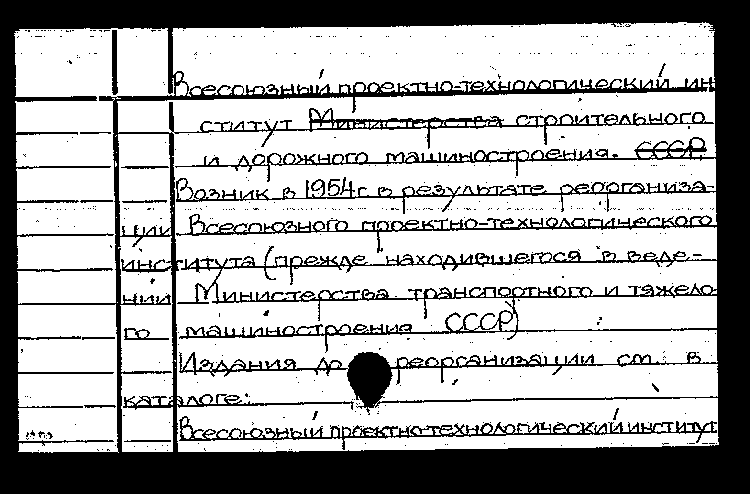 Всесоюзный проектно-технологический ин
ститут Министерства строительного
и дорожного машиностроения. СССР.
Возник в 1954г. в результате реорганиза-
ции Всесоюзного проектно-технологического
института (прежде находившегося в веде-
нии Министерства транспортного и тяжело
го машиностроения СССР)
Издания до реорганизации см. в
каталоге:
Всесоюзный проектно-технологический институт